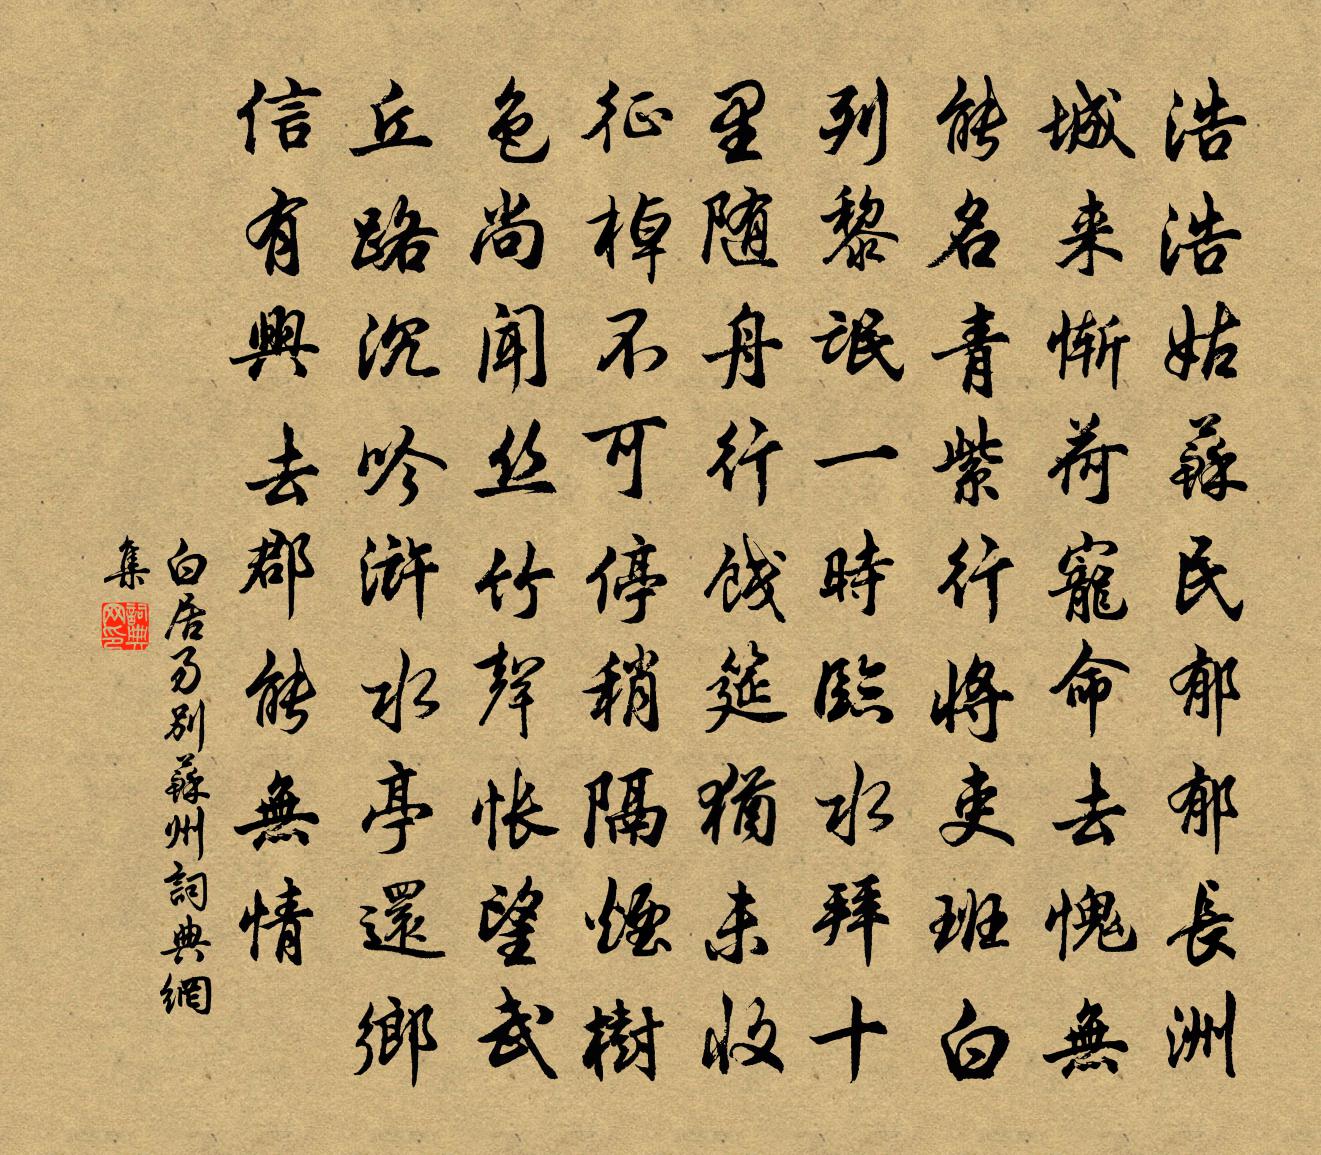 浩浩姑蘇民郁郁長洲
城来慚荷寵命去愧無
能名青紫行将吏班白
列黎氓一時臨水拜十
里随舟行餞筵猶未收
征棹不可停稍隔煙樹
色尚聞丝竹聲怅望武
丘路沉吟滸水亭還鄉
信有興去郡能無情
白居易别蘇州詞典網
集
詞典网印